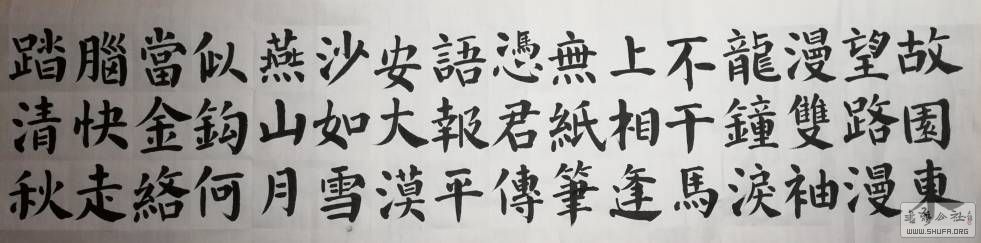 故園東
望路漫
漫雙袖
龍鐘淚
不干馬
上相逢
無紙筆
憑君傳
語報平
安大漠
沙如雪
燕山月
似鈎何
當金絡
腦快走
踏清秋
WWW.SHUFA.ORG